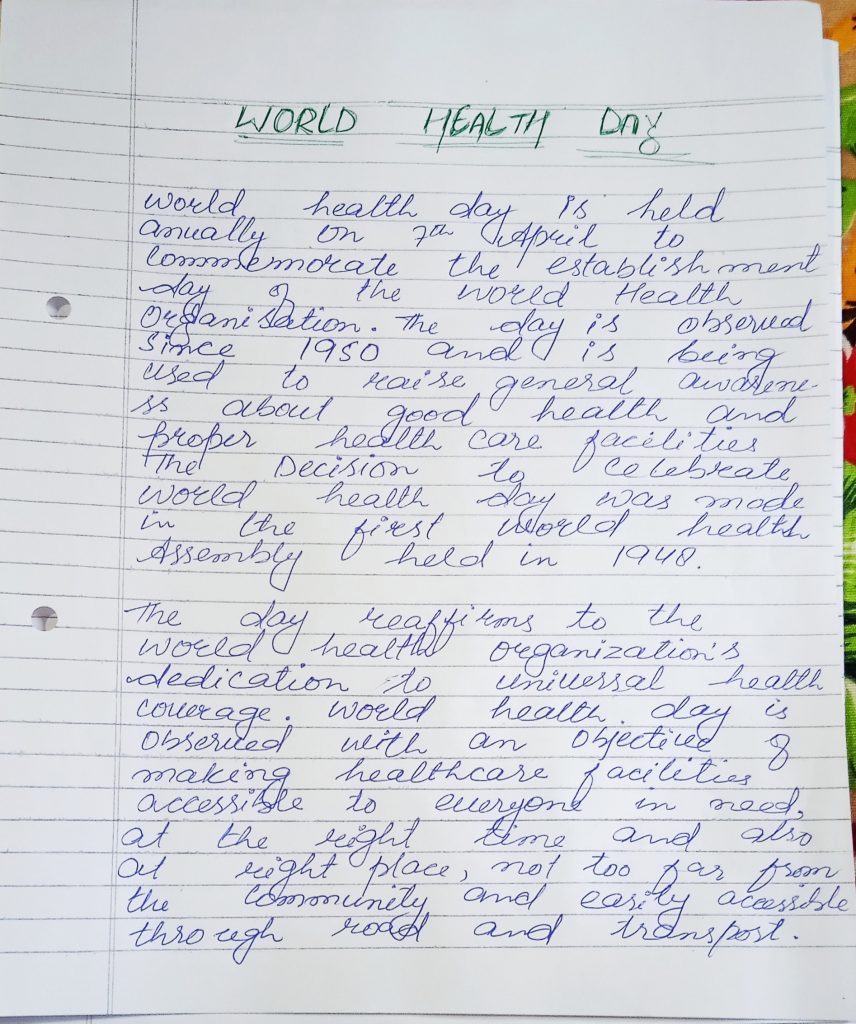 WORLD HEALTH DAY
world health day is held
anually on 7th April to
Commemorate the establishment
day of the world Health
Organisation. The day is observed
since 1950 and is being
used to raise general awarene-
ss about good health and
proper health care facilities
The Decision to Celebrate
world health day was made
in the first world health
Assembly held in 1948.
The day reaffirms to the
world health organization's
dedication to universal health
coverage. World health day is
Observed with an Objective of
making healthcare facilities
accessible to everyone in need,
at the right time and also
at right place, not too far from
the Community and easily accessible
through road and transport.